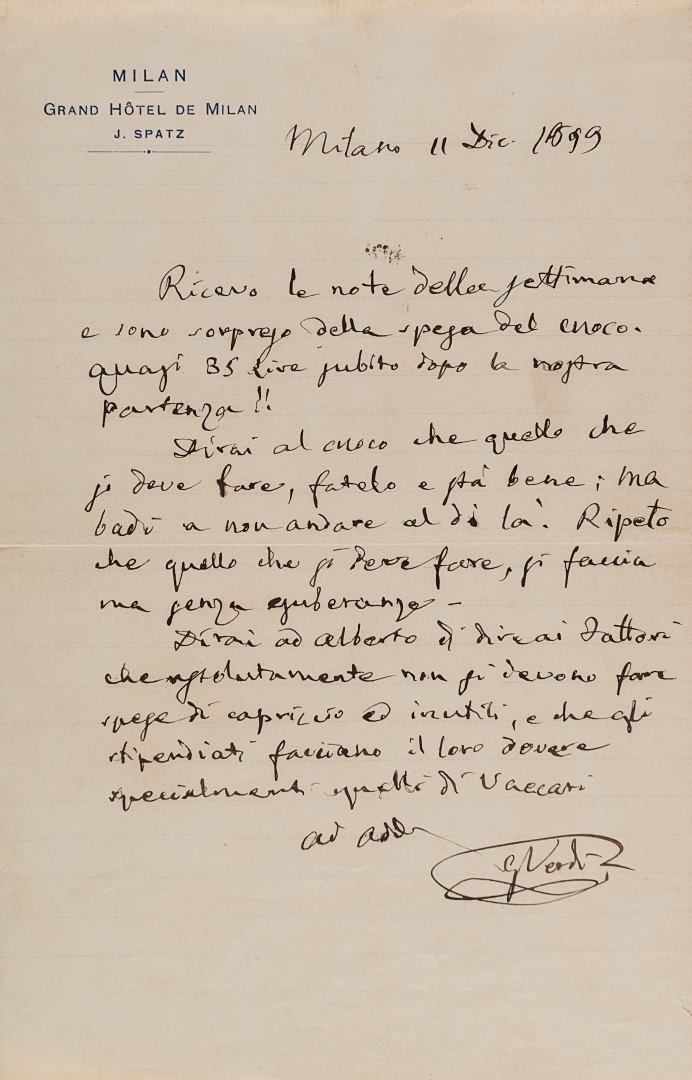 MILAN
GRAND HÔTEL DE MILAN
J. SPATZ
Milano 11 Dic. 1899
Ricevo le note della settimana
e sono sorpreso della spesa del cuoco.
quasi 35 Lire subito dopo la nostra
partenza!!
Dirai al cuoco che quello che
si deve fare, fatelo e stà bene; ma
badi a non andare al di là. Ripeto
che quello che si deve fare, si faccia
ma senza esuberanze –
Dirai ad Alberto di dire ai Fattori
che assolutamente non si devono fare
spese di capriccio ed inutili, e che gli
stipendiati facciano il loro dovere
specialmente quelli di Vaccari
ad add
G Verdi